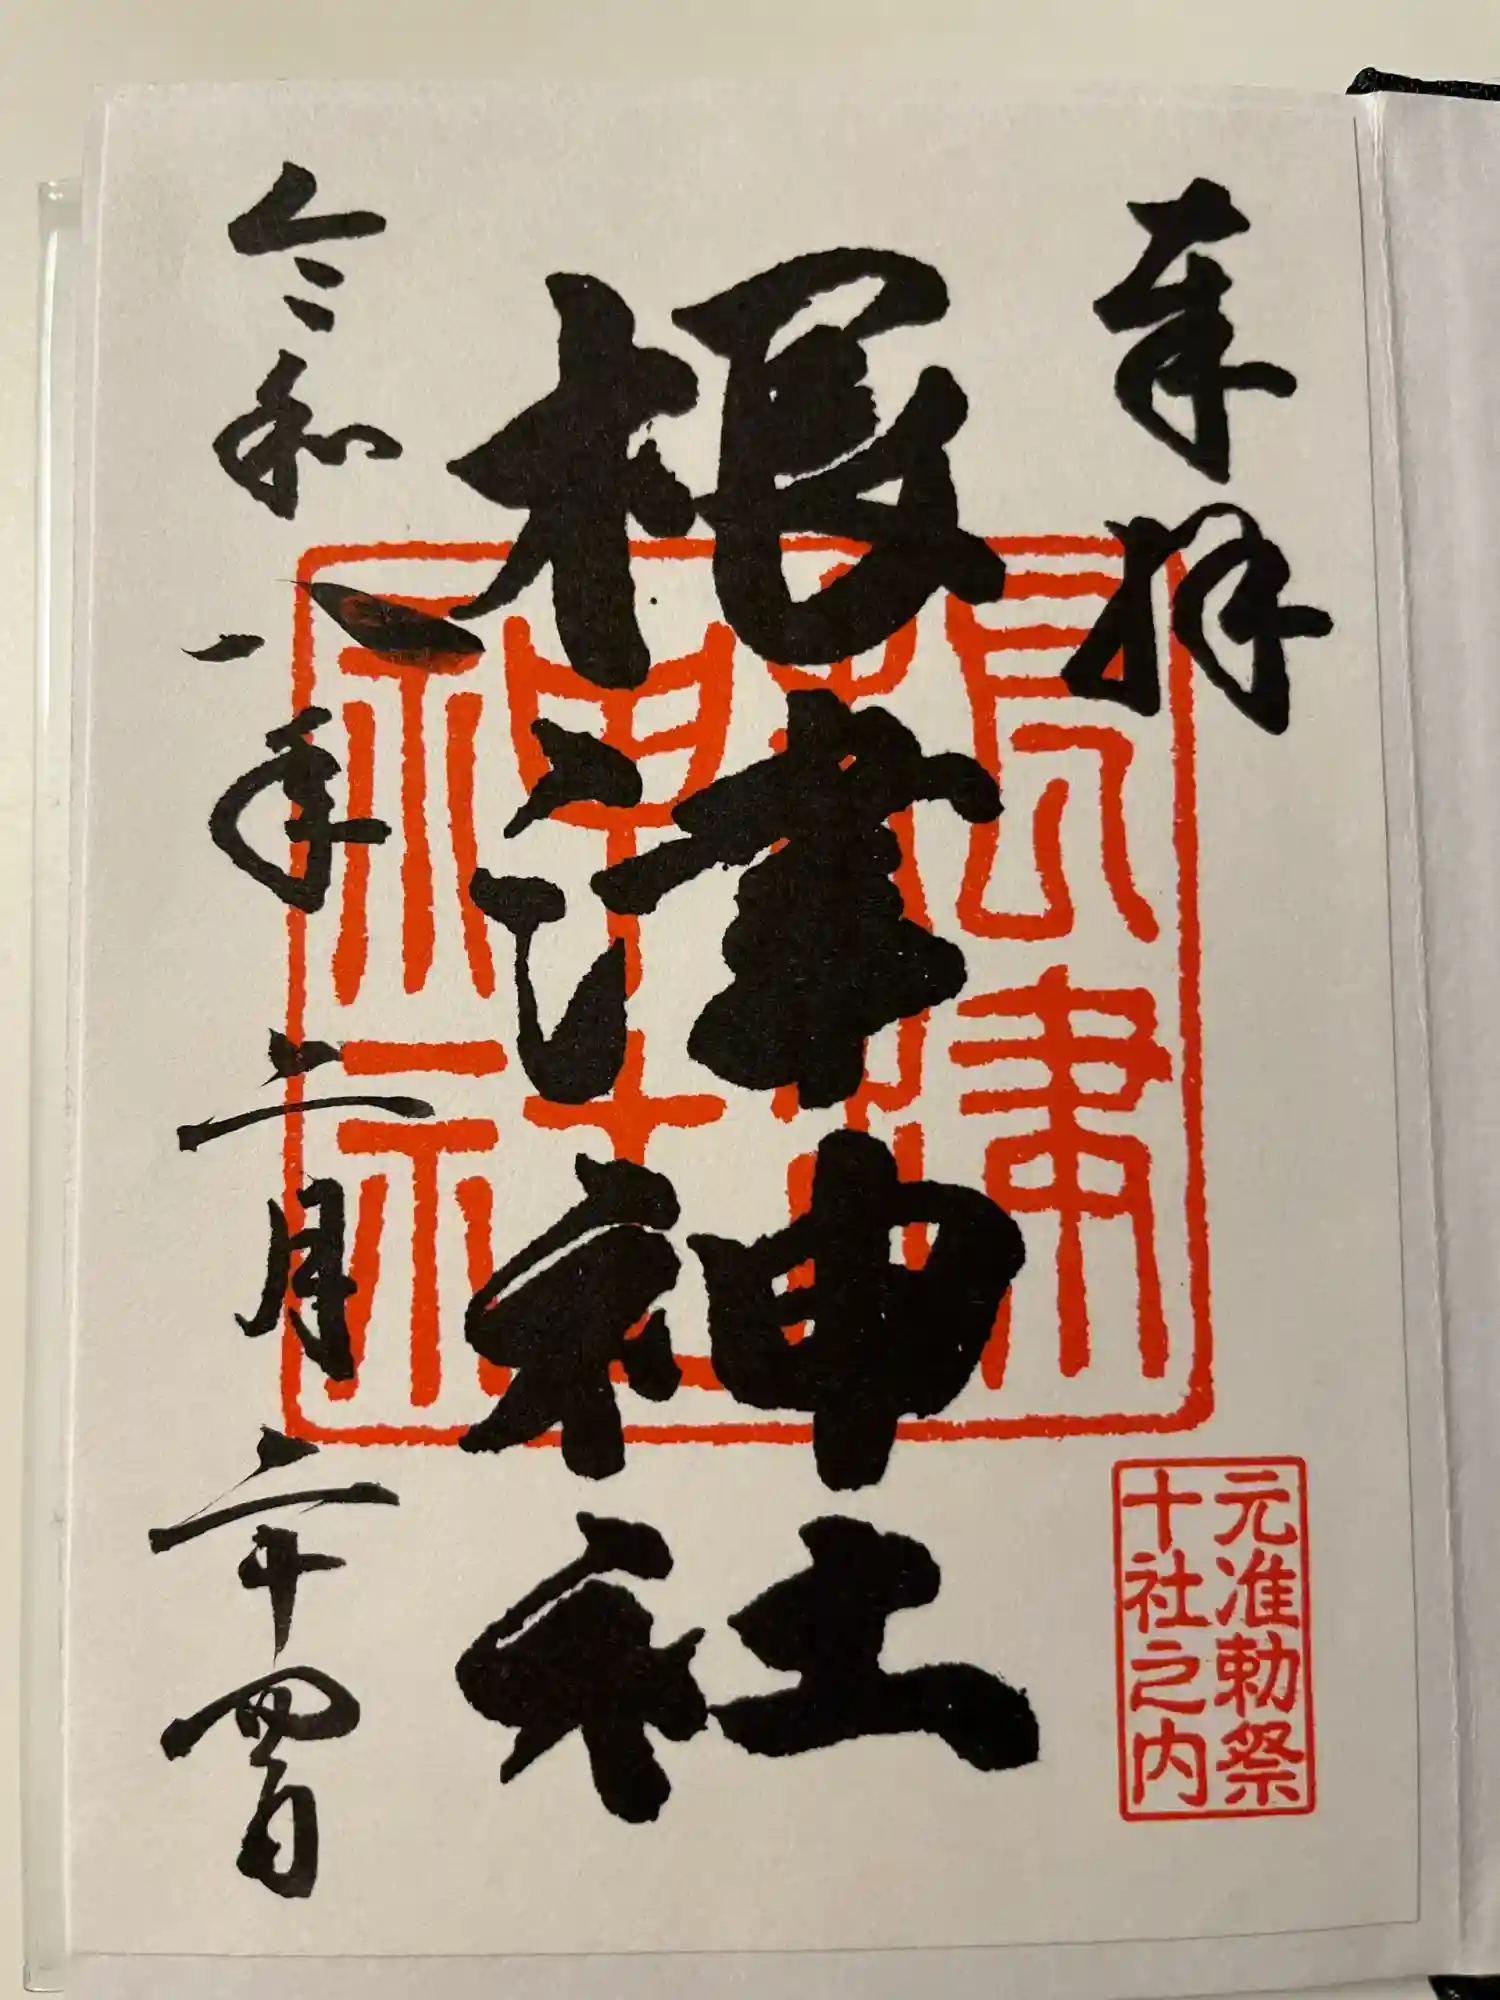 奉拝
根津神社
根津
神社
元准勅祭
十社之内
令和八年二月二十四日